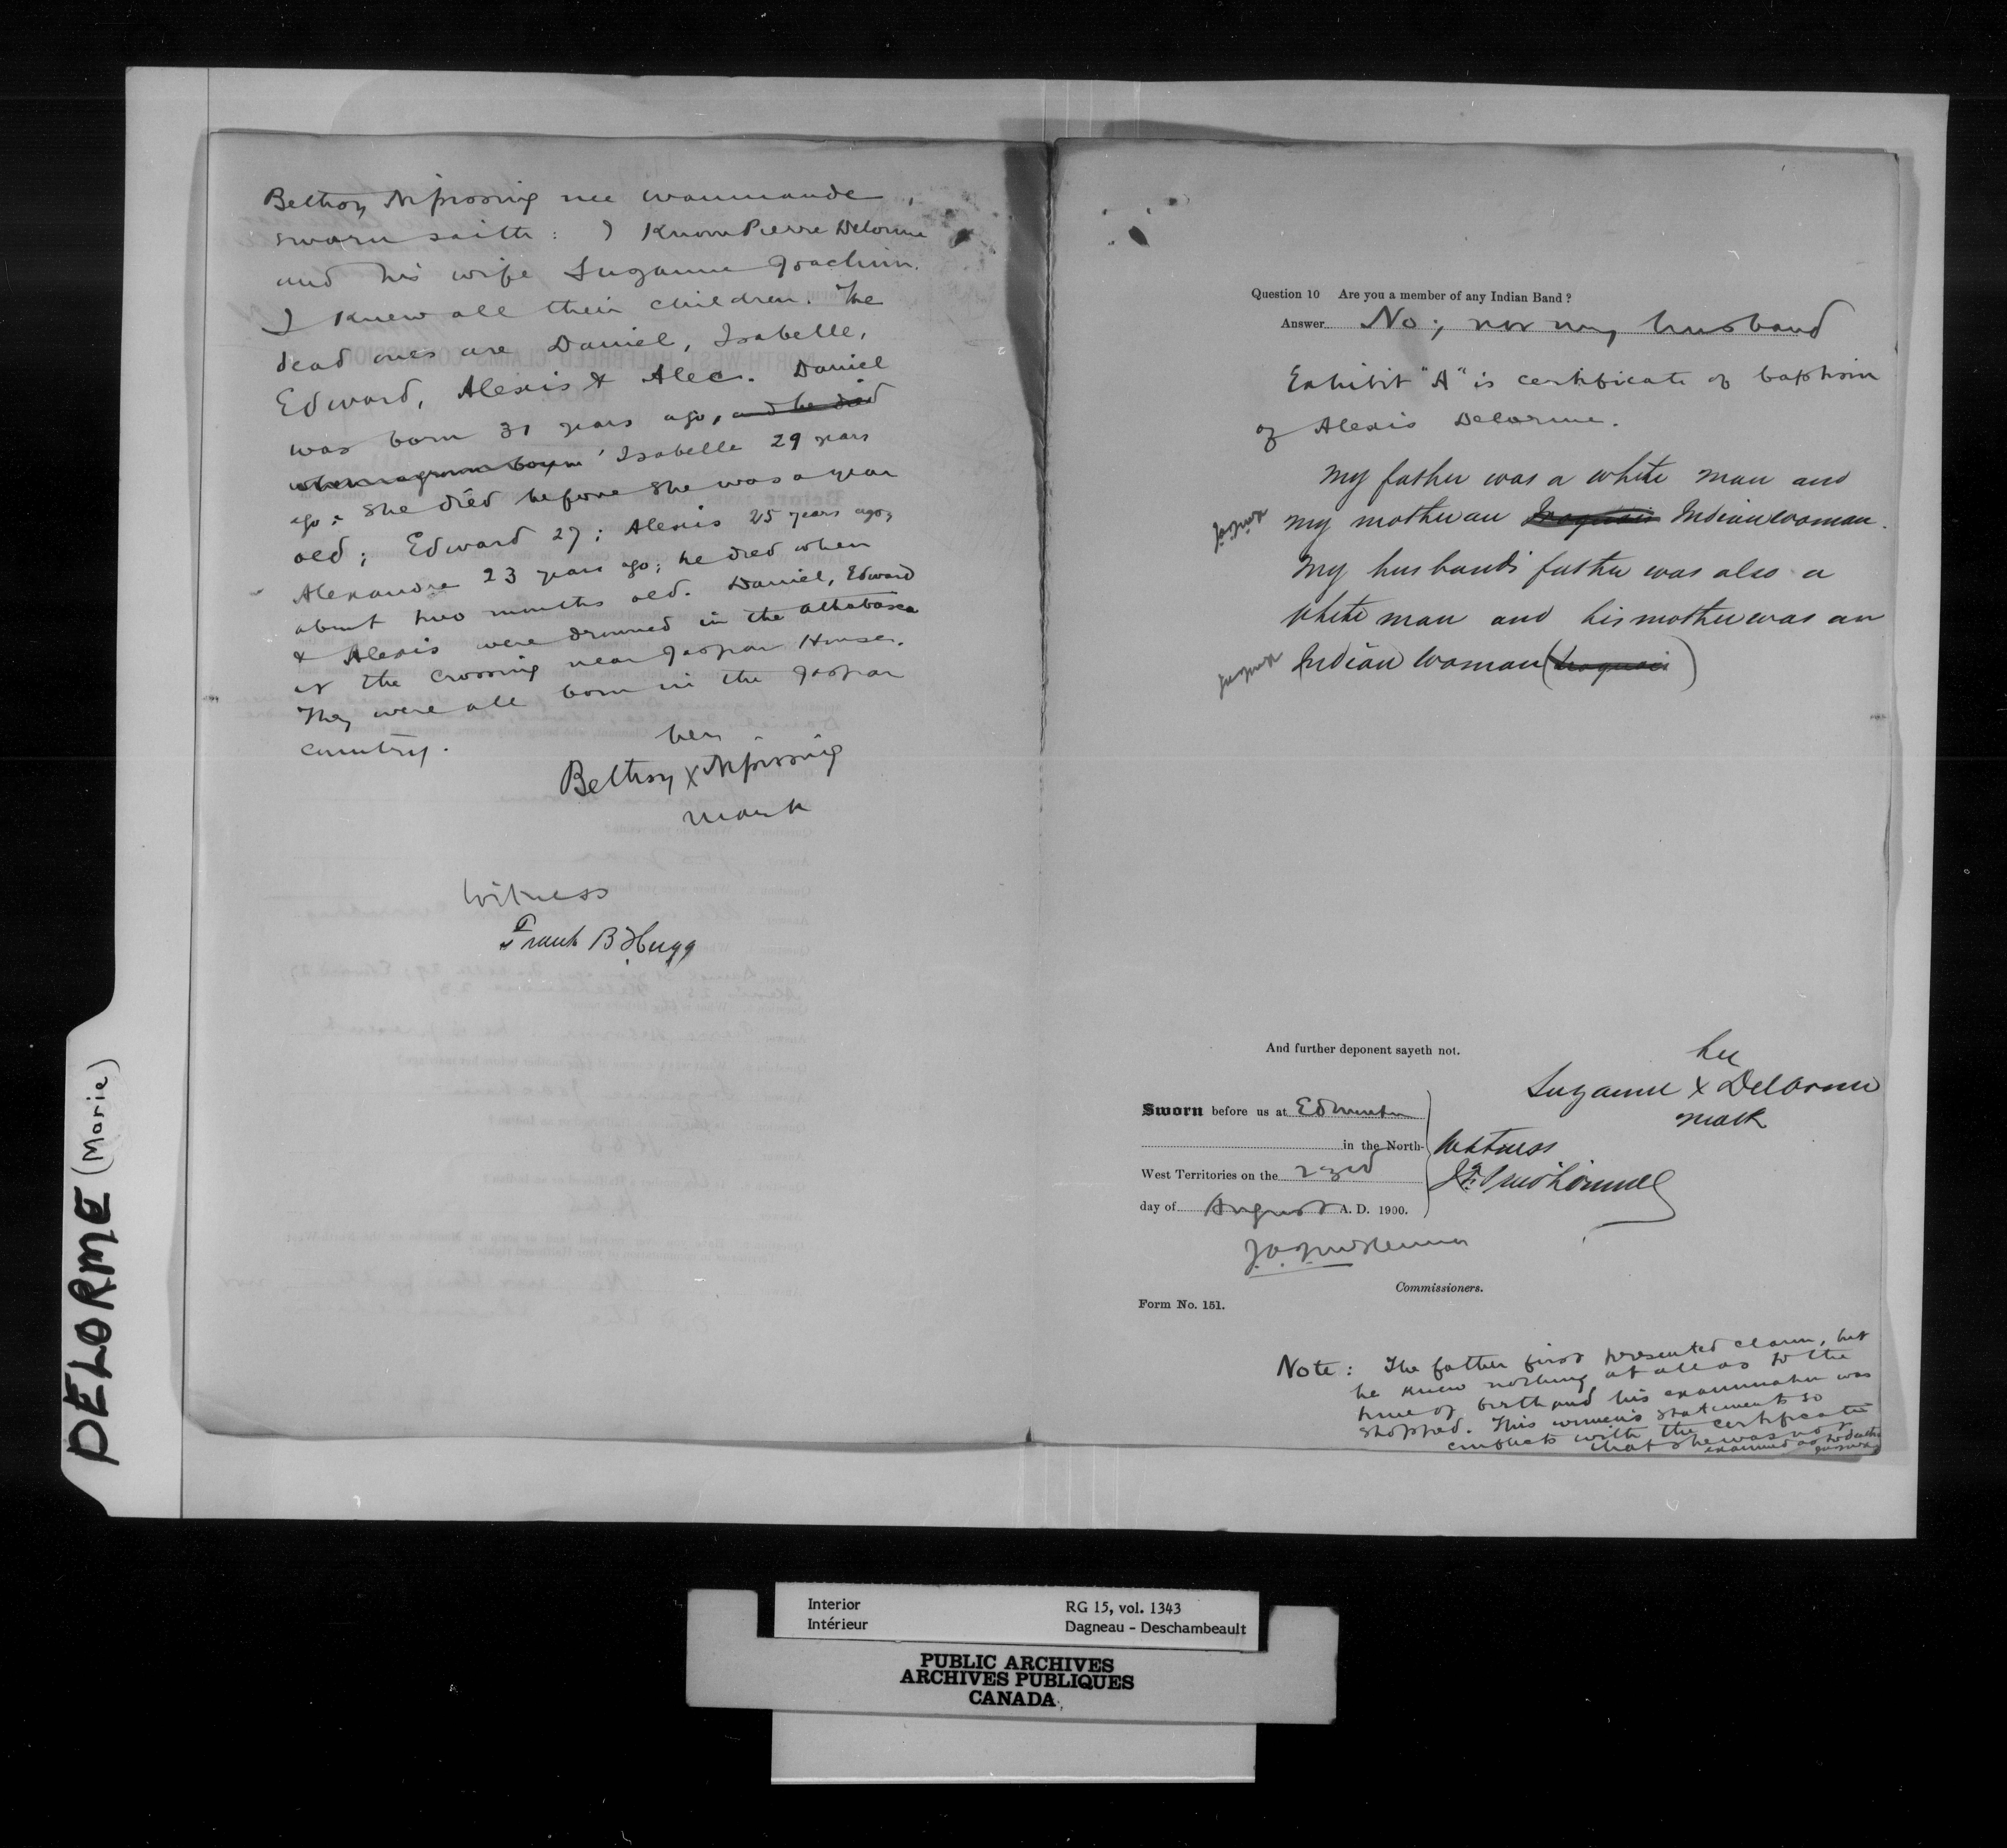 Betsy Nipissing nee Wanmande,
sworn saith: I know Pierre Delorme
and his wife Suzanne Joachim.
I knew all their children. The
dead ones are Daniel, Isabelle,
Edward, Alexis & Alec. Daniel
was born 31 years ago, and he died
Isabelle 29 years
ago; she died before she was a year
old; Edward 27; Alexis 25 years ago,
Alexandre 23 years ago; he died when
about two months old. Daniel, Edward
& Alexis were drowned in the Athabasca
at the crossing near Jaspar House.
They were all born in the Jaspar
country.
her
Betsy X Nipissing
mark
Witness
Frank B Hugg
Question 10 Are you a member of any Indian Band?
Answer No; nor my husband
Exhibit "A" is certificate of baptism
of Alexis Delorme.
My father was a white man and
my mother an Iroquois Indian woman.
My husband's father was also a
white man and his mother was an
Indian Woman (Iroquois)
And further deponent sayeth not.
her
Suzanne X Delorme
mark
Sworn before us at Edmonton
in the North-
West Territories on the 23rd
day of August A. D. 1900.
Witness
Commissioners.
Form No. 151.
Note: The father first presented claim, but
he knew nothing at all as to the
time of birth and his examination was
stopped. This women's statements so
conflicts with the certificate
that she was not
examined as to deaths
DELORME (Marie)
Interior
Intérieur
RG 15, vol. 1343
Dagneau - Deschambeault
PUBLIC ARCHIVES
ARCHIVES PUBLIQUES
CANADA